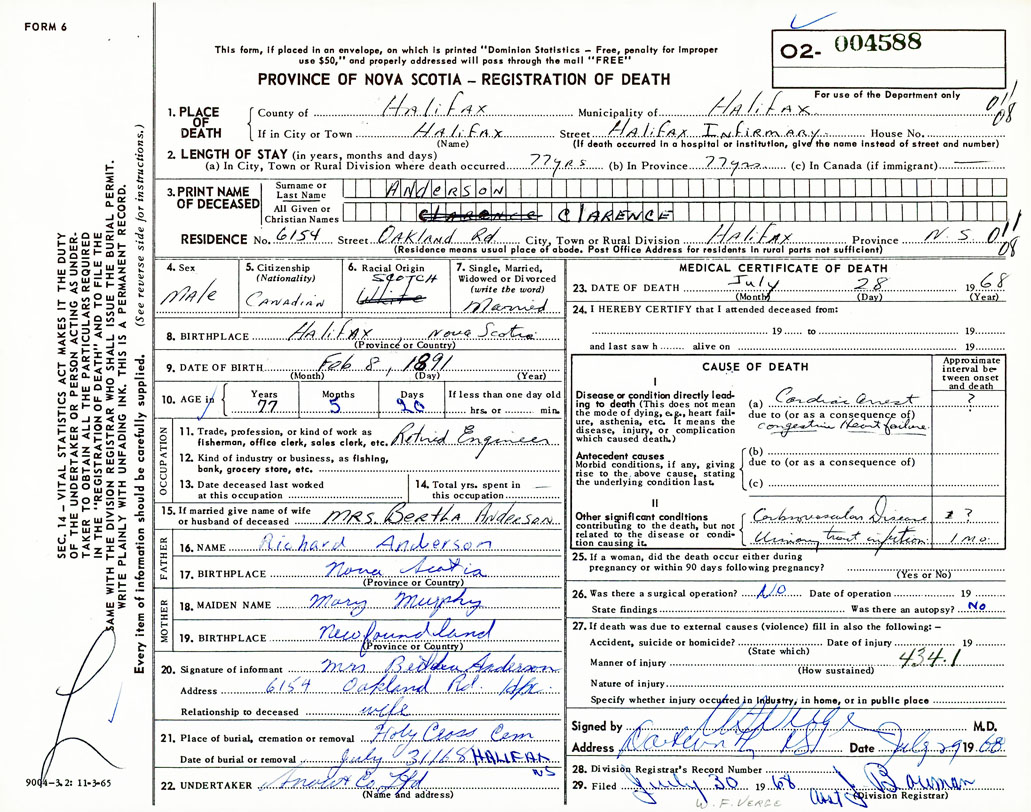 FORM 6
This form, if placed in an envelope, on which is printed "Dominion Statistics – Free, penalty for improper
use $50," and properly addressed will pass through the mail "FREE"
PROVINCE OF NOVA SCOTIA – REGISTRATION OF DEATH
O2- 004588
For use of the Department only
011
08
1. PLACE OF DEATH
County of Halifax Municipality of Halifax
If in City or Town Halifax Street Halifax Infirmary House No.
(Name) (If death occurred in a hospital or institution, give the name instead of street and number)
2. LENGTH OF STAY (in years, months and days)
(a) In City, Town or Rural Division where death occurred 77yrs (b) In Province 77yrs (c) In Canada (if immigrant) —
3. PRINT NAME OF DECEASED
Surname or Last Name ANDERSON
All Given or Christian Names CLARENCE CLARENCE
RESIDENCE No. 6154 Street Oakland Rd. City, Town or Rural Division Halifax Province N.S.
(Residence means usual place of abode. Post Office Address for residents in rural parts not sufficient)
011
08
4. Sex
Male
5. Citizenship
(Nationality)
CANADIAN
6. Racial Origin
SCOTCH
White
7. Single, Married,
Widowed or Divorced
(write the word)
Married
8. BIRTHPLACE Halifax Nova Scotia
(Province or Country)
9. DATE OF BIRTH Feb 8, 1891
(Month) (Day) (Year)
10. AGE in
Years 77
Months 5
Days 20
If less than one day old
hrs. or min.
OCCUPATION
11. Trade, profession, or kind of work as
fisherman, office clerk, sales clerk, etc. Retired Engineer
12. Kind of industry or business, as fishing,
bank, grocery store, etc.
13. Date deceased last worked
at this occupation
14. Total yrs. spent in
this occupation —
15. If married give name of wife
or husband of deceased MRS. Bertha Anderson
FATHER
16. NAME Richard Anderson
17. BIRTHPLACE Nova Scotia
(Province or Country)
MOTHER
18. MAIDEN NAME Mary Murphy
19. BIRTHPLACE Newfoundland
(Province or Country)
20. Signature of informant Mrs Bertha Anderson
Address 6154 Oakland Rd. Hfx.
Relationship to deceased wife
21. Place of burial, cremation or removal Holy Cross Cem
Date of burial or removal July 31/68 HALIFAX
NS
22. UNDERTAKER Snow & Co Ltd
(Name and address)
MEDICAL CERTIFICATE OF DEATH
23. DATE OF DEATH July 28 1968
(Month) (Day) (Year)
24. I HEREBY CERTIFY that I attended deceased from:
19 to 19
and last saw h alive on 19
CAUSE OF DEATH
Approximate
interval be-
tween onset
and death
I
Disease or condition directly lead-
ing to death (This does not mean
the mode of dying, e.g., heart fail-
ure, asthenia, etc. It means the
disease, injury, or complication
which caused death.)
(a) Cardiac Arrest ?
due to (or as a consequence of)
congestive Heart failure
Antecedent causes
Morbid conditions, if any, giving
rise to the above cause, stating
the underlying condition last.
(b)
due to (or as a consequence of)
(c)
II
Other significant conditions
contributing to the death, but not
related to the disease or condi-
tion causing it.
Cerebrovascular Disease ?
Urinary tract infection 1 mo.
25. If a woman, did the death occur either during
pregnancy or within 90 days following pregnancy?
(Yes or No)
26. Was there a surgical operation? NO Date of operation 19
State findings Was there an autopsy? No
27. If death was due to external causes (violence) fill in also the following: –
Accident, suicide or homicide? Date of injury 19
(State which)
Manner of injury 434.1
(How sustained)
Nature of injury
Specify whether injury occurred in industry, in home, or in public place
Signed by M.D.
Address Date July 29 1968
28. Division Registrar's Record Number
29. Filed July 30 1968 Asst J Bowman
(Division Registrar)
W. F. VERGE
SEC. 14 – VITAL STATISTICS ACT MAKES IT THE DUTY
OF THE UNDERTAKER OR PERSON ACTING AS UNDER-
TAKER TO OBTAIN ALL THE PARTICULARS REQUIRED
IN THE "REGISTRATION OF DEATH" AND TO FILE THE
SAME WITH THE DIVISION REGISTRAR WHO SHALL ISSUE THE BURIAL PERMIT.
WRITE PLAINLY WITH UNFADING INK. THIS IS A PERMANENT RECORD.
Every item of information should be carefully supplied. (See reverse side for instructions.)
9004-3.2: 11-3-65